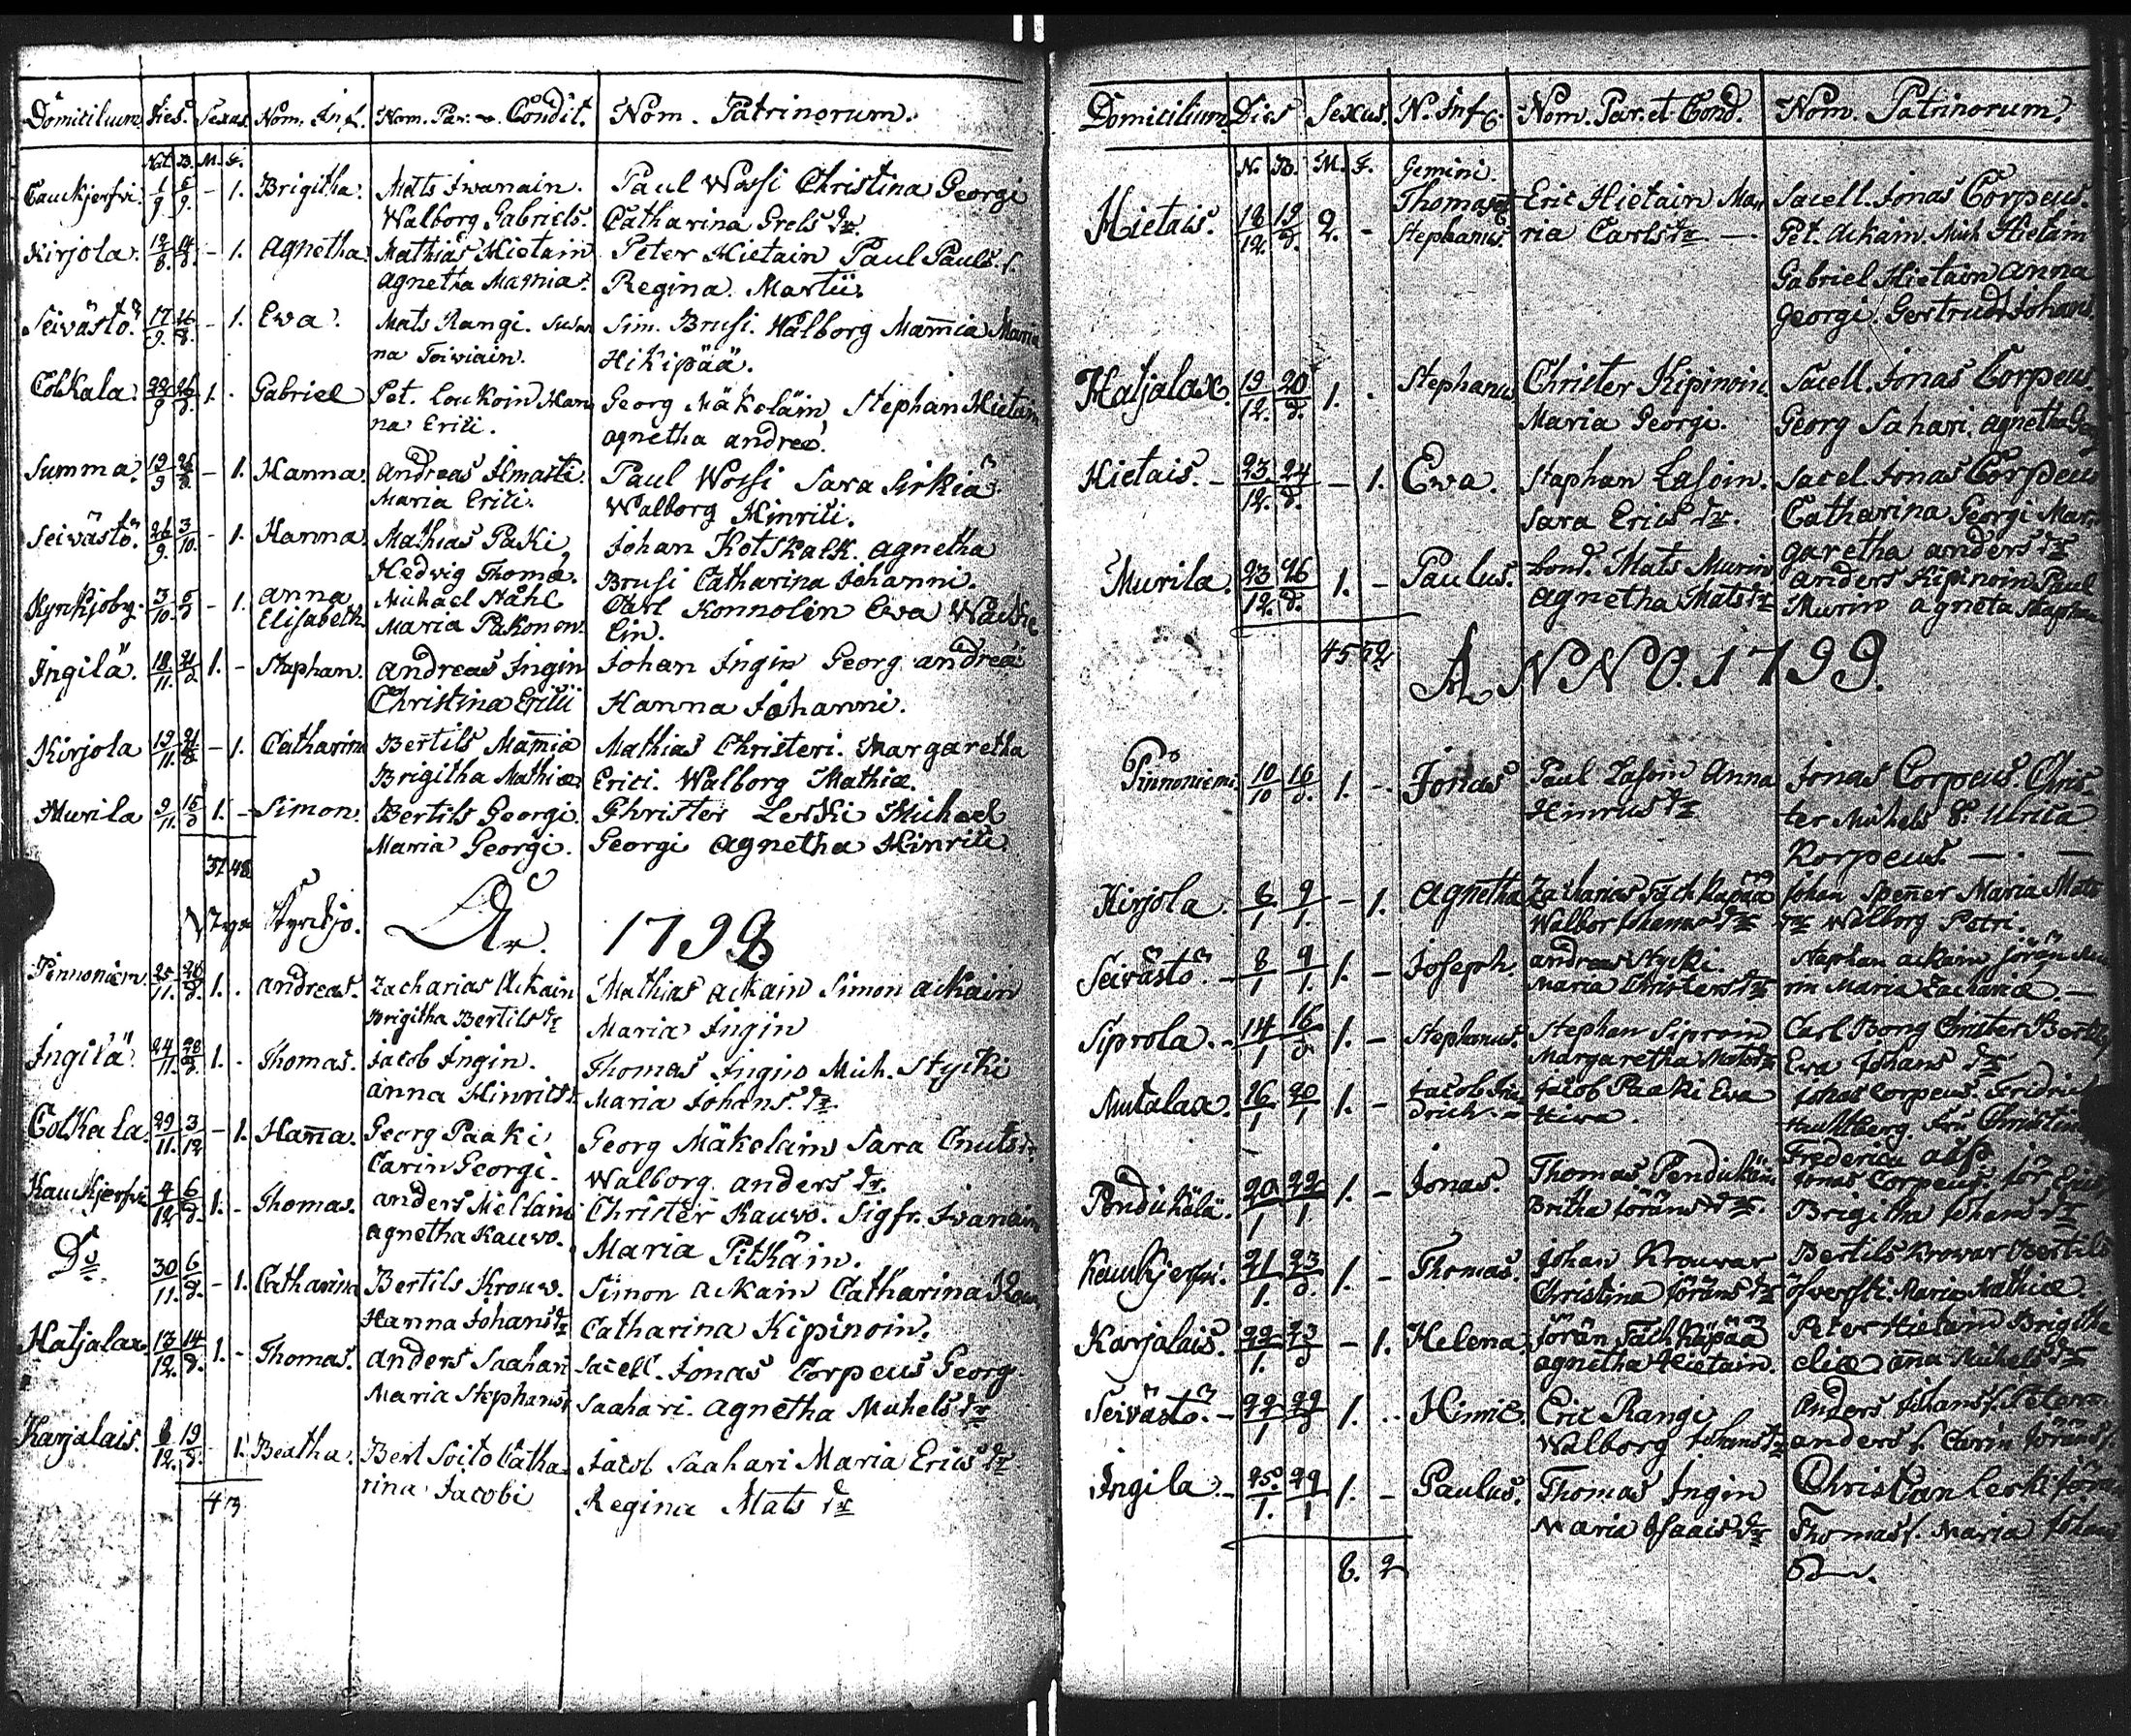 Domicilium. Dies. Sexus. Nom. Inf. Nom. Par. et Condit. Nom. Patrinorum.
Nat. B. M. F.
Cauckjerfvi. 1/9 6/9. - 1. Brigitha. Mats Iwanain. Paul Wossi Christina Georgi
Walborg Gabriels. Catharina Grels dr.
Kirjola. 12/8. 14/8 - 1. Agnetha. Mathias Hietain Peter Hietain Paul Pauls. s.
Agnetha Mathiæ. Regina Martii.
Seivästö. 17/9. - 1. Ewa. Mats Rangi. Susan Sim. Brusi. Walborg Mam̅ia Maria
na Toiviain. Hikipää.
Colkala. 22/9 26/d. 1. - Gabriel Pet. Loukoin Han Georg Mäkeläin Stephan Hietain
na Erici. Agnetha Andreæ.
Summa. 19/9 26/d. - 1. Hanna. Andreas Ilmasti. Paul Wossi Sara Sirkiä.
Maria Erici. Walborg Hinrici.
Seivästö. 26/9. 3/10. - 1. Hanna Mathias Paki Johan Kotskalk. Agnetha
Hedvig Thomæ. Brusi Catharina Johanni.
Kynkjoby. 3/10. 6/d - 1. Anna Michael Ståhl Carl Konnolin Ewa Wäche
Elisabeth. Maria Pakonen. lin.
Ingilä. 18/11. 21/d 1. - Staphan. Andreas Ingin Johan Ingin Georg Andreæ
Christina Ericii Hanna Johanni.
Kirjola 19/11. 21/d - 1. Catharina Bertils Mam̅ia Mathias Christeri. Margaretha
Brigitha Mathiæ Erici. Walborg Mathiæ.
Murila 9/11. 15/d 1. - Simon. Bertils Georgi. Christer Leski Michael
Maria Georgi. Georgi Agnetha Hinrici.
37 48
Styrckjo. Ar. 1798
Pinnoniem. 25/11. 26/d. 1. - Andreas. Zacharias Ackain Mathias Ackain Simon Ackain
Brigitha Bertils dr Maria Ingin
Ingilä. 24/11. 28/d. 1. - Thomas. Jacob Ingin. Thomas Ingin Mich. Stycki
Anna Hinrics d. Maria Johans. dr
Colkala. 29/11. 3/12 - 1. Han̅a. Georg Paaki Georg Mäkeläin Sara Cnuts dr
Carin Georgi. Walborg anders dr.
Kauckjerfvi 4/12 6/d. 1. - Thomas. Anders Mellain Christer Kauwo. Sigfr. Ivanain
Agnetha Kauvo. Maria Pitkäin.
Do. 30/11. 6/d. - 1. Catharina Bertils Krouv. Simon Ackain Catharina
Hanna Johans dr Catharina Kipinoin.
Hatjalax 13/12. 14/d. 1. - Thomas. Anders Saahari Sacell. Jonas Corpeus Georg
Maria Stephans Saahari. Agnetha Michels dr
Karjalais. 6/12. 19/d. - 1. Beatha. Bert Soito Catha Jacob Saahari Maria Erics dr
rina Jacobi Regina Mats dr
4 3
Domicilium. Dies Sexus. N. Inf. Nom. Par. et Cond. Nom. Patrinorum.
N. B. M. F. Gemini.
Hietais. 18/12. 19/d. 2. - Thomas et Eric Hietain Ma Sacell. Jonas Corpeus.
Stephanus. ria Carls dr — Pet. Ackain. Mich Hietain
Gabriel Hietain Anna
Georgi. Gertrud Johans
Hatjalax. 19/12. 20/d. 1. - Stephanus Christer Kipinoin. Sacell. Jonas Corpeus.
Maria Georgi. Georg Sahari. Agnetha Georg
Hietais. 23/12. 24/d. - 1. Ewa. Staphan Lasoin. Sacel. Jonas Corpeus
Sara Erics dr. Catharina Georgi Mar
garetha anders dr
Murila. 23/12. 26/d. 1. - Paulus. bond. Mats Murin Anders Kipinoin Paul
Agnetha Mats dr Murin Agneta Staphan
45 52
ANNO. 1799.
Pinnoniemi 10/10 16/d. 1. - Jonas Paul Lasoin Anna Jonas Corpeus. Chris-
Hinrics dr ter Michels S. Ulrica
Korpeus — —
Kirjola. 8/1 9/1. - 1. Agnetha Zacharias Täckkäpää Johan Spener Maria Mats
Walbor Johans dr dr Walborg Petri.
Seivästö. 8/1 9/1. 1. - Joseph. Andreas Stycki. Staphan Ackain Jöran
Maria Christers dr Maria Zachariæ. —
Siprola. 14/1 16/d 1. - Stephanus. Stephan Siproin Carl Bong Christer Bertils
Margaretha Mats dr Ewa Johans dr
Mutalax. 16/1 20/1 1. - Jacob Frie Jacob Paaki Ewa Jonas Corpeus. Fridric
drich. Hiwa. Hultberg. Fru Christin
Frederica Asp
Pendickälä. 20/1 22/1. 1. - Jonas. Thomas Pendickäin. Jonas Corpeus. Jör Eric
Britha Jörans dr. Brigitha Johans dr
Kauckjerfvi. 21/1. 23/d. 1. - Thomas. Johan Krouvar Bertils Krowar Bertils
Christina Jörans dr Öfversti. Maria Mathiæ.
Karjalais. 22/1. 23/d - 1. Helena Jörän Täckkäpää Peter Hietain Brigitha
Agnetha Hietain. eliæ an̅a Michels dr
Seivästö. - 22/1 29/d 1. - Hinric. Eric Rangi Anders Johans s. Peter
Walborg Johans dr anders s. Carin Jörans
Ingila. - 25./1. 29/1 1. - Paulus. Thomas Ingin Christian Leski Jöran
Maria Isaacs dr Thomas s. Maria Johans
8. 2